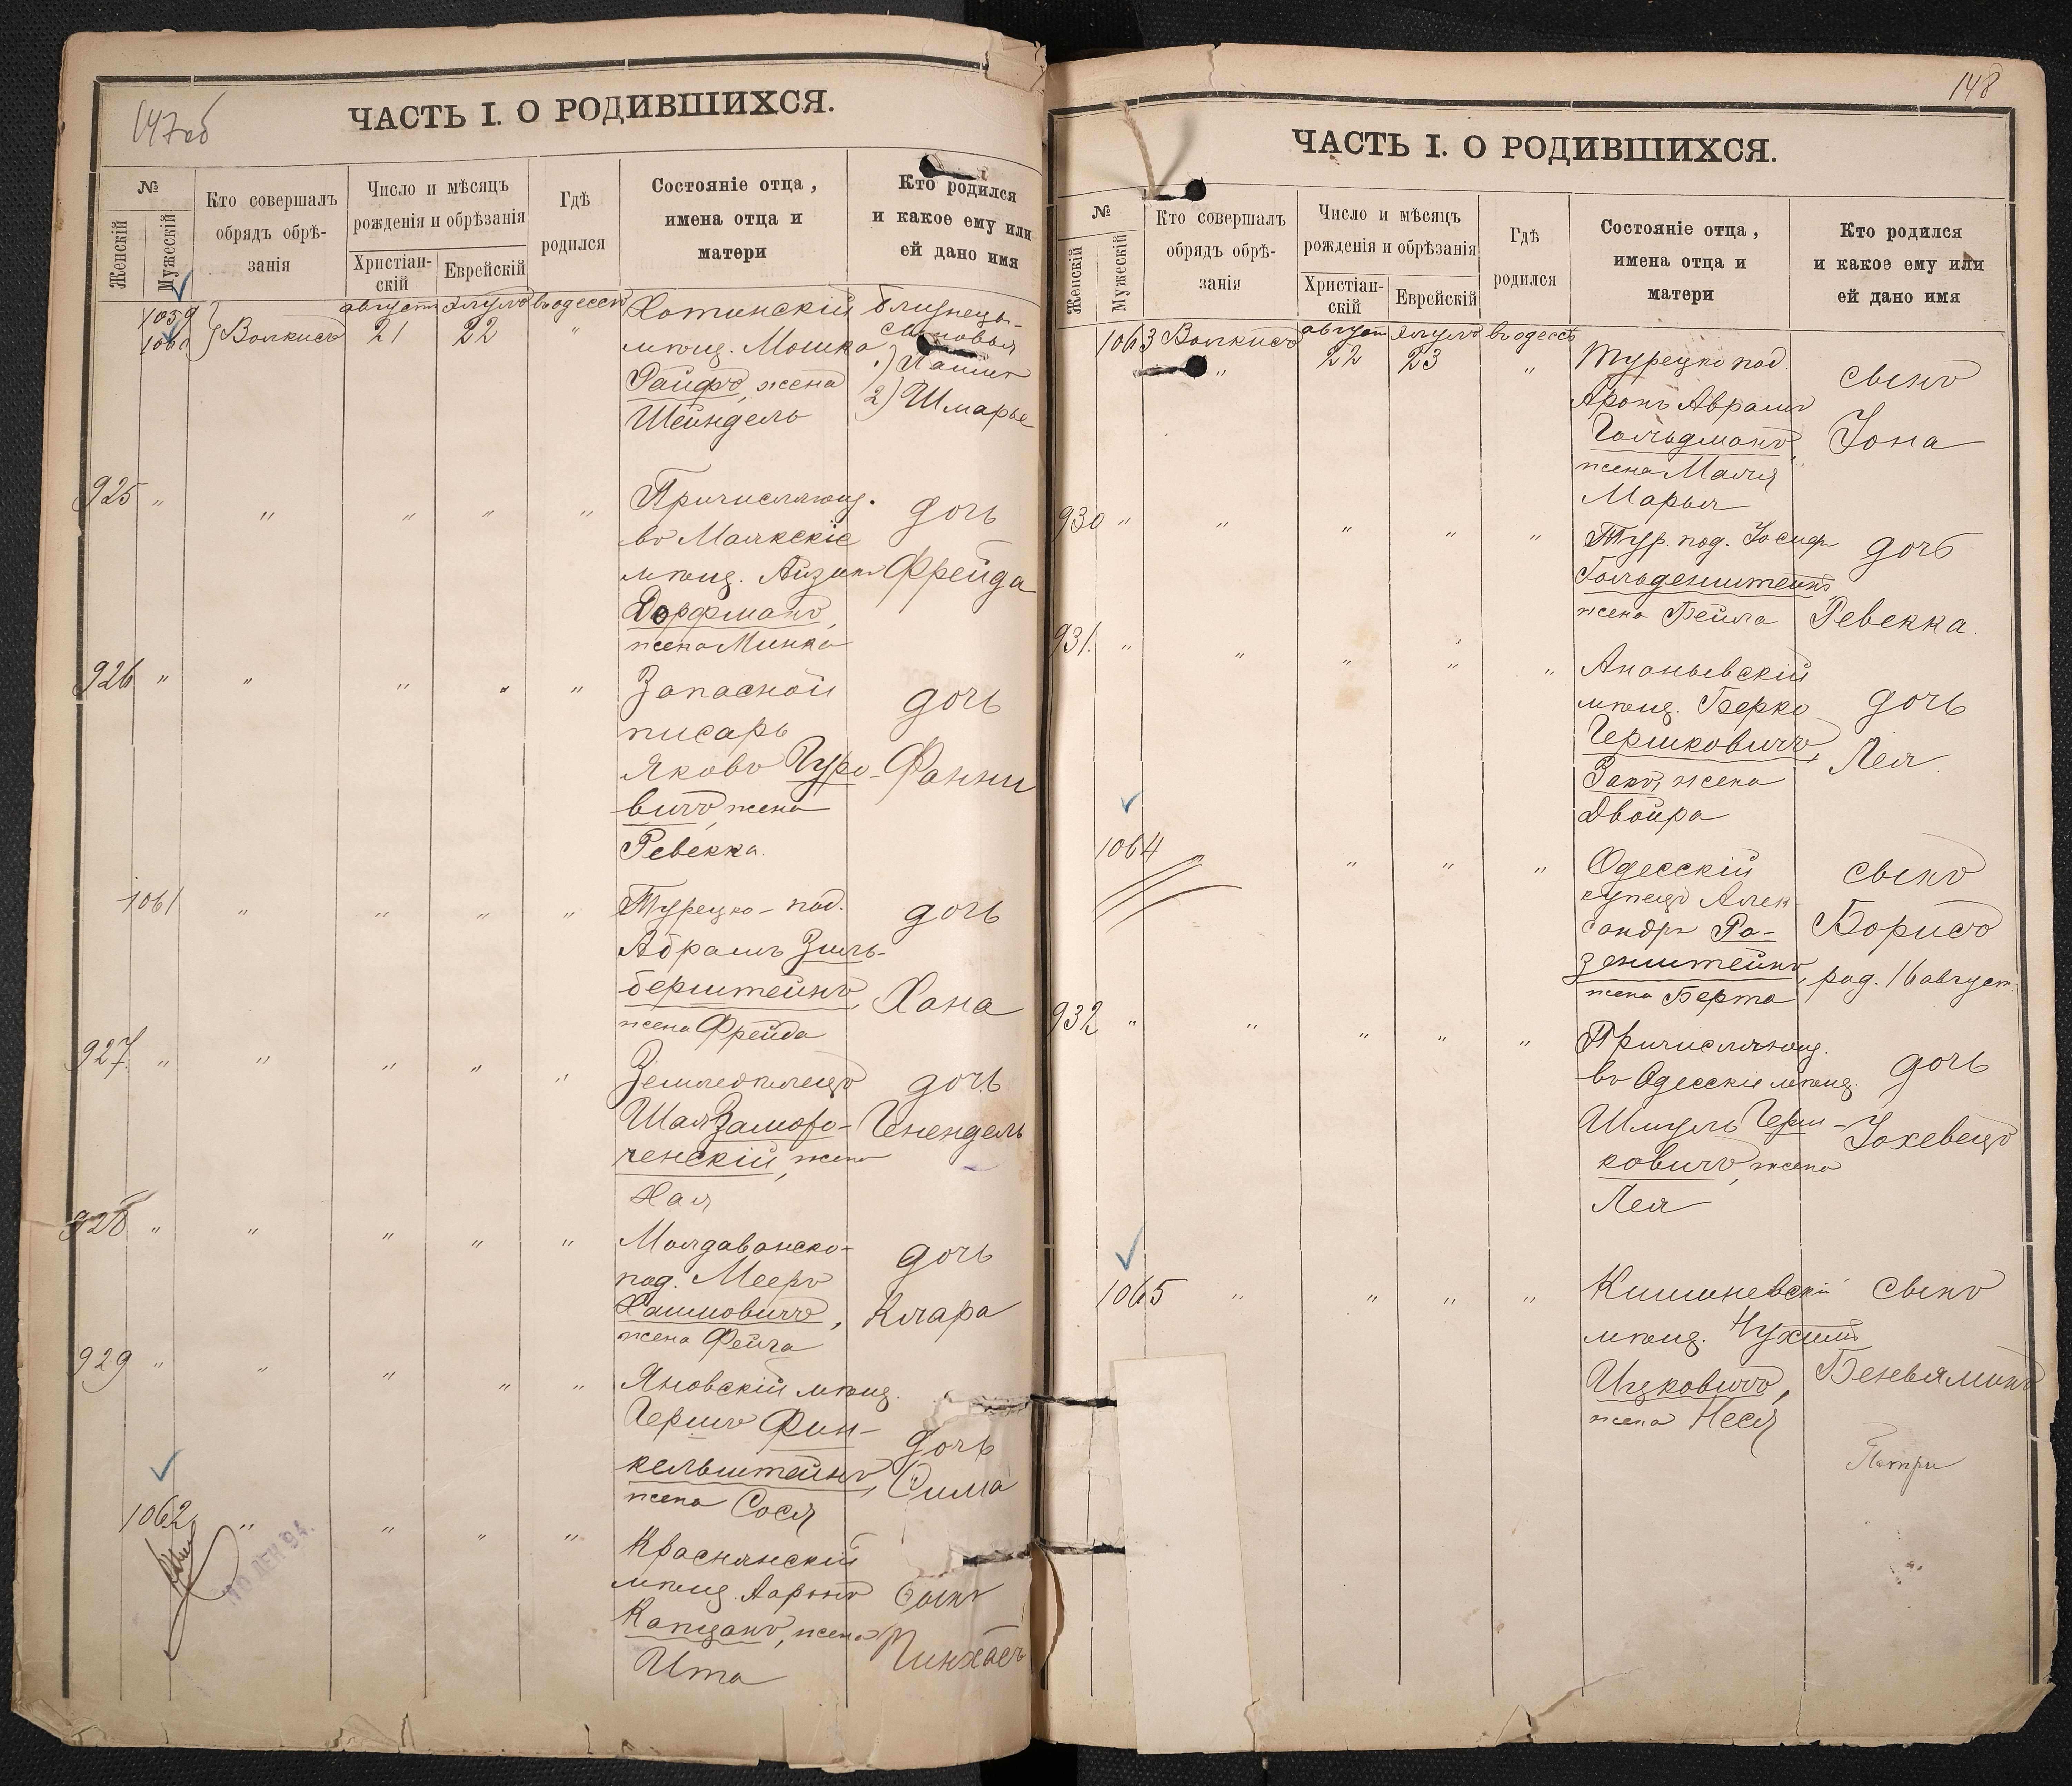 147об
ЧАСТЬ I. О РОДИВШИХСЯ.
№
Женскій
Мужескій
Кто совершалъ
обрядъ обрѣ-
занія
Число и мѣсяцъ
рожденія и обрѣзанія
Христіан-
скій
Еврейскій
Гдѣ
родился
Состояніе отца,
имена отца и
матери
Кто родился
и какое ему или
ей дано имя
1059
1060
Волкисъ
августъ
21
элулъ
22
въ одессѣ
"
Хотинскій
мѣщ. Мошко
Райфъ, жена
Шейндель
близнецы-
сыновья
2) Шмарье
925 " " " " "
Причисляющ.
въ Маякскіе
мѣщ. Айзикъ
Дорфманъ,
жена Минка
дочь
Фрейда
926 " " " " "
Запасной
писарь
Яковъ Гуро-
вичъ, жена
Ревекка.
дочь
Фанни
1061 " " " "
Турецко-под.
Абрамъ Зиль-
берштейнъ,
жена Фрейда
дочь
Хана
927. " " " " "
Землевладѣлецъ
Шая Заморо-
ченскій, жена
Хая
дочь
Ченендель
928 " " " " "
Молдаванско-
под. Мееръ
Хаимовичъ,
жена Фейга
дочь
Клара
929 " " " " "
Яновскій мѣщ.
Гершъ Фин-
кельштейнъ,
жена Сося
дочь
Сима
1062 " " " "
10 ДЕК 94.
Краснянскій
мѣщ. Ааронъ
Капцанъ, жена
Ита
сынъ
Пинхасъ
148
ЧАСТЬ I. О РОДИВШИХСЯ.
№
Женскій
Мужескій
Кто совершалъ
обрядъ обрѣ-
занія
Число и мѣсяцъ
рожденія и обрѣзанія
Христіан-
скій
Еврейскій
Гдѣ
родился
Состояніе отца,
имена отца и
матери
Кто родился
и какое ему или
ей дано имя
1063
Волкисъ
"
августъ
22
элулъ
23
въ одессѣ
"
Турецко под.
Аронъ Авраамъ
Гольдманъ,
жена Маля
Марья
сынъ
Іона
930 " " " " "
Тур. под. Іосифъ
Гольденштейнъ,
жена Бейла
дочь
Ревекка.
931. " " " " "
Ананьевскій
мѣщ. Берко
Гершковичъ,
Закъ, жена
Двойра
дочь
Лея
1064 " " "
Одесскій
купецъ Алек-
сандръ Ро-
зенштейнъ,
жена Берта
сынъ
Борисъ
род. 16 август.
932 " " " " "
Причисляющ.
въ Одесскіе мѣщ.
Шмуль Герш-
ковичъ, жена
Лея
дочь
Іохевецъ
1065 " " " "
Кишиневскій
мѣщ. Нухимъ
Ицковичъ,
жена Неся
сынъ
Беневяминъ